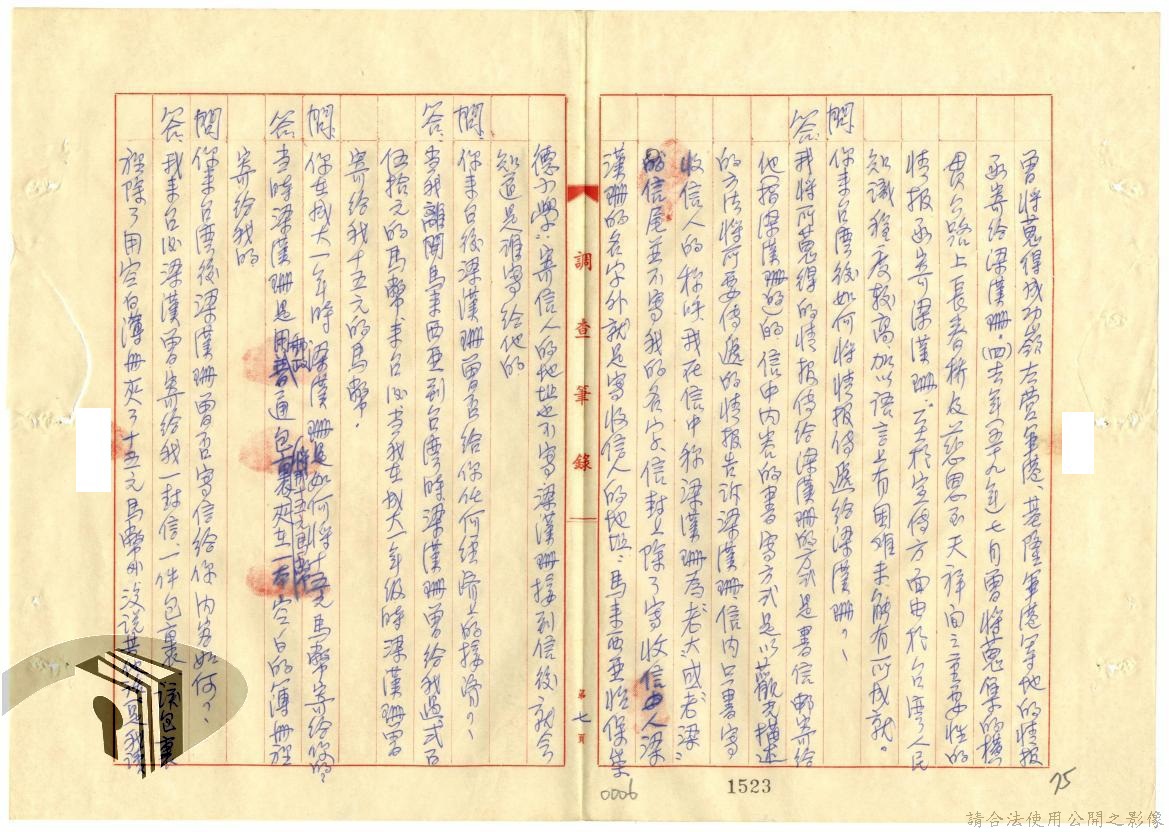 曾將蒐得成功嶺左營軍港、基隆軍港等地的情報
函寄給梁漢珊。(四)去年(五十九年)七月曾將蒐集的橫
貫公路上長春橋及慈恩至天祥間之重要性的
情報函寄梁漢珊。至於宣傳方面由於台灣人民
知識程度較高加以語言上有困難未能有所成就。
問 你來台灣後如何將情報傳遞給梁漢珊?
答 我將所蒐得的情報傳給梁漢珊的方式是書信郵寄給
他(指梁漢珊)的信中內容的書寫方式是以觀光描述
的方法將所要傳遞的情報告訴梁漢珊信內只書寫
收信人的称呼我在信中称梁漢珊為「老大」或「老梁」
的信尾並不寫我的名字、信封上除了寫收信人梁
漢珊的名字外就是寫收信人的地址:馬來西亞怡保
調查筆錄
第七頁
德小學:寄信人的地址也不寫梁漢珊接到信後就會
知道是誰寫給他的
問 你來台後梁漢珊曾否給你任何經濟上的接濟?
答 當我離開馬來西亞到台灣時梁漢珊曾給我過弍百
伍拾元的馬幣來台後當我在成大一年級時梁漢珊曾
寄給我十五元的馬幣。
問 你在成大一年時梁漢珊是如何將十五元馬幣寄給你的
答 當時梁漢珊是用普通包裹夾在一本空白的簿冊裡
郵政
寄給我的
問 你來台灣後梁漢珊曾否寫信給你內容如何?
答 我來台後梁漢曾寄給我一封信一件包裹
該包裹
裡除了用空白簿冊夾了十五元馬幣外沒說其他
1523
0006
75
請合法使用公開之影像